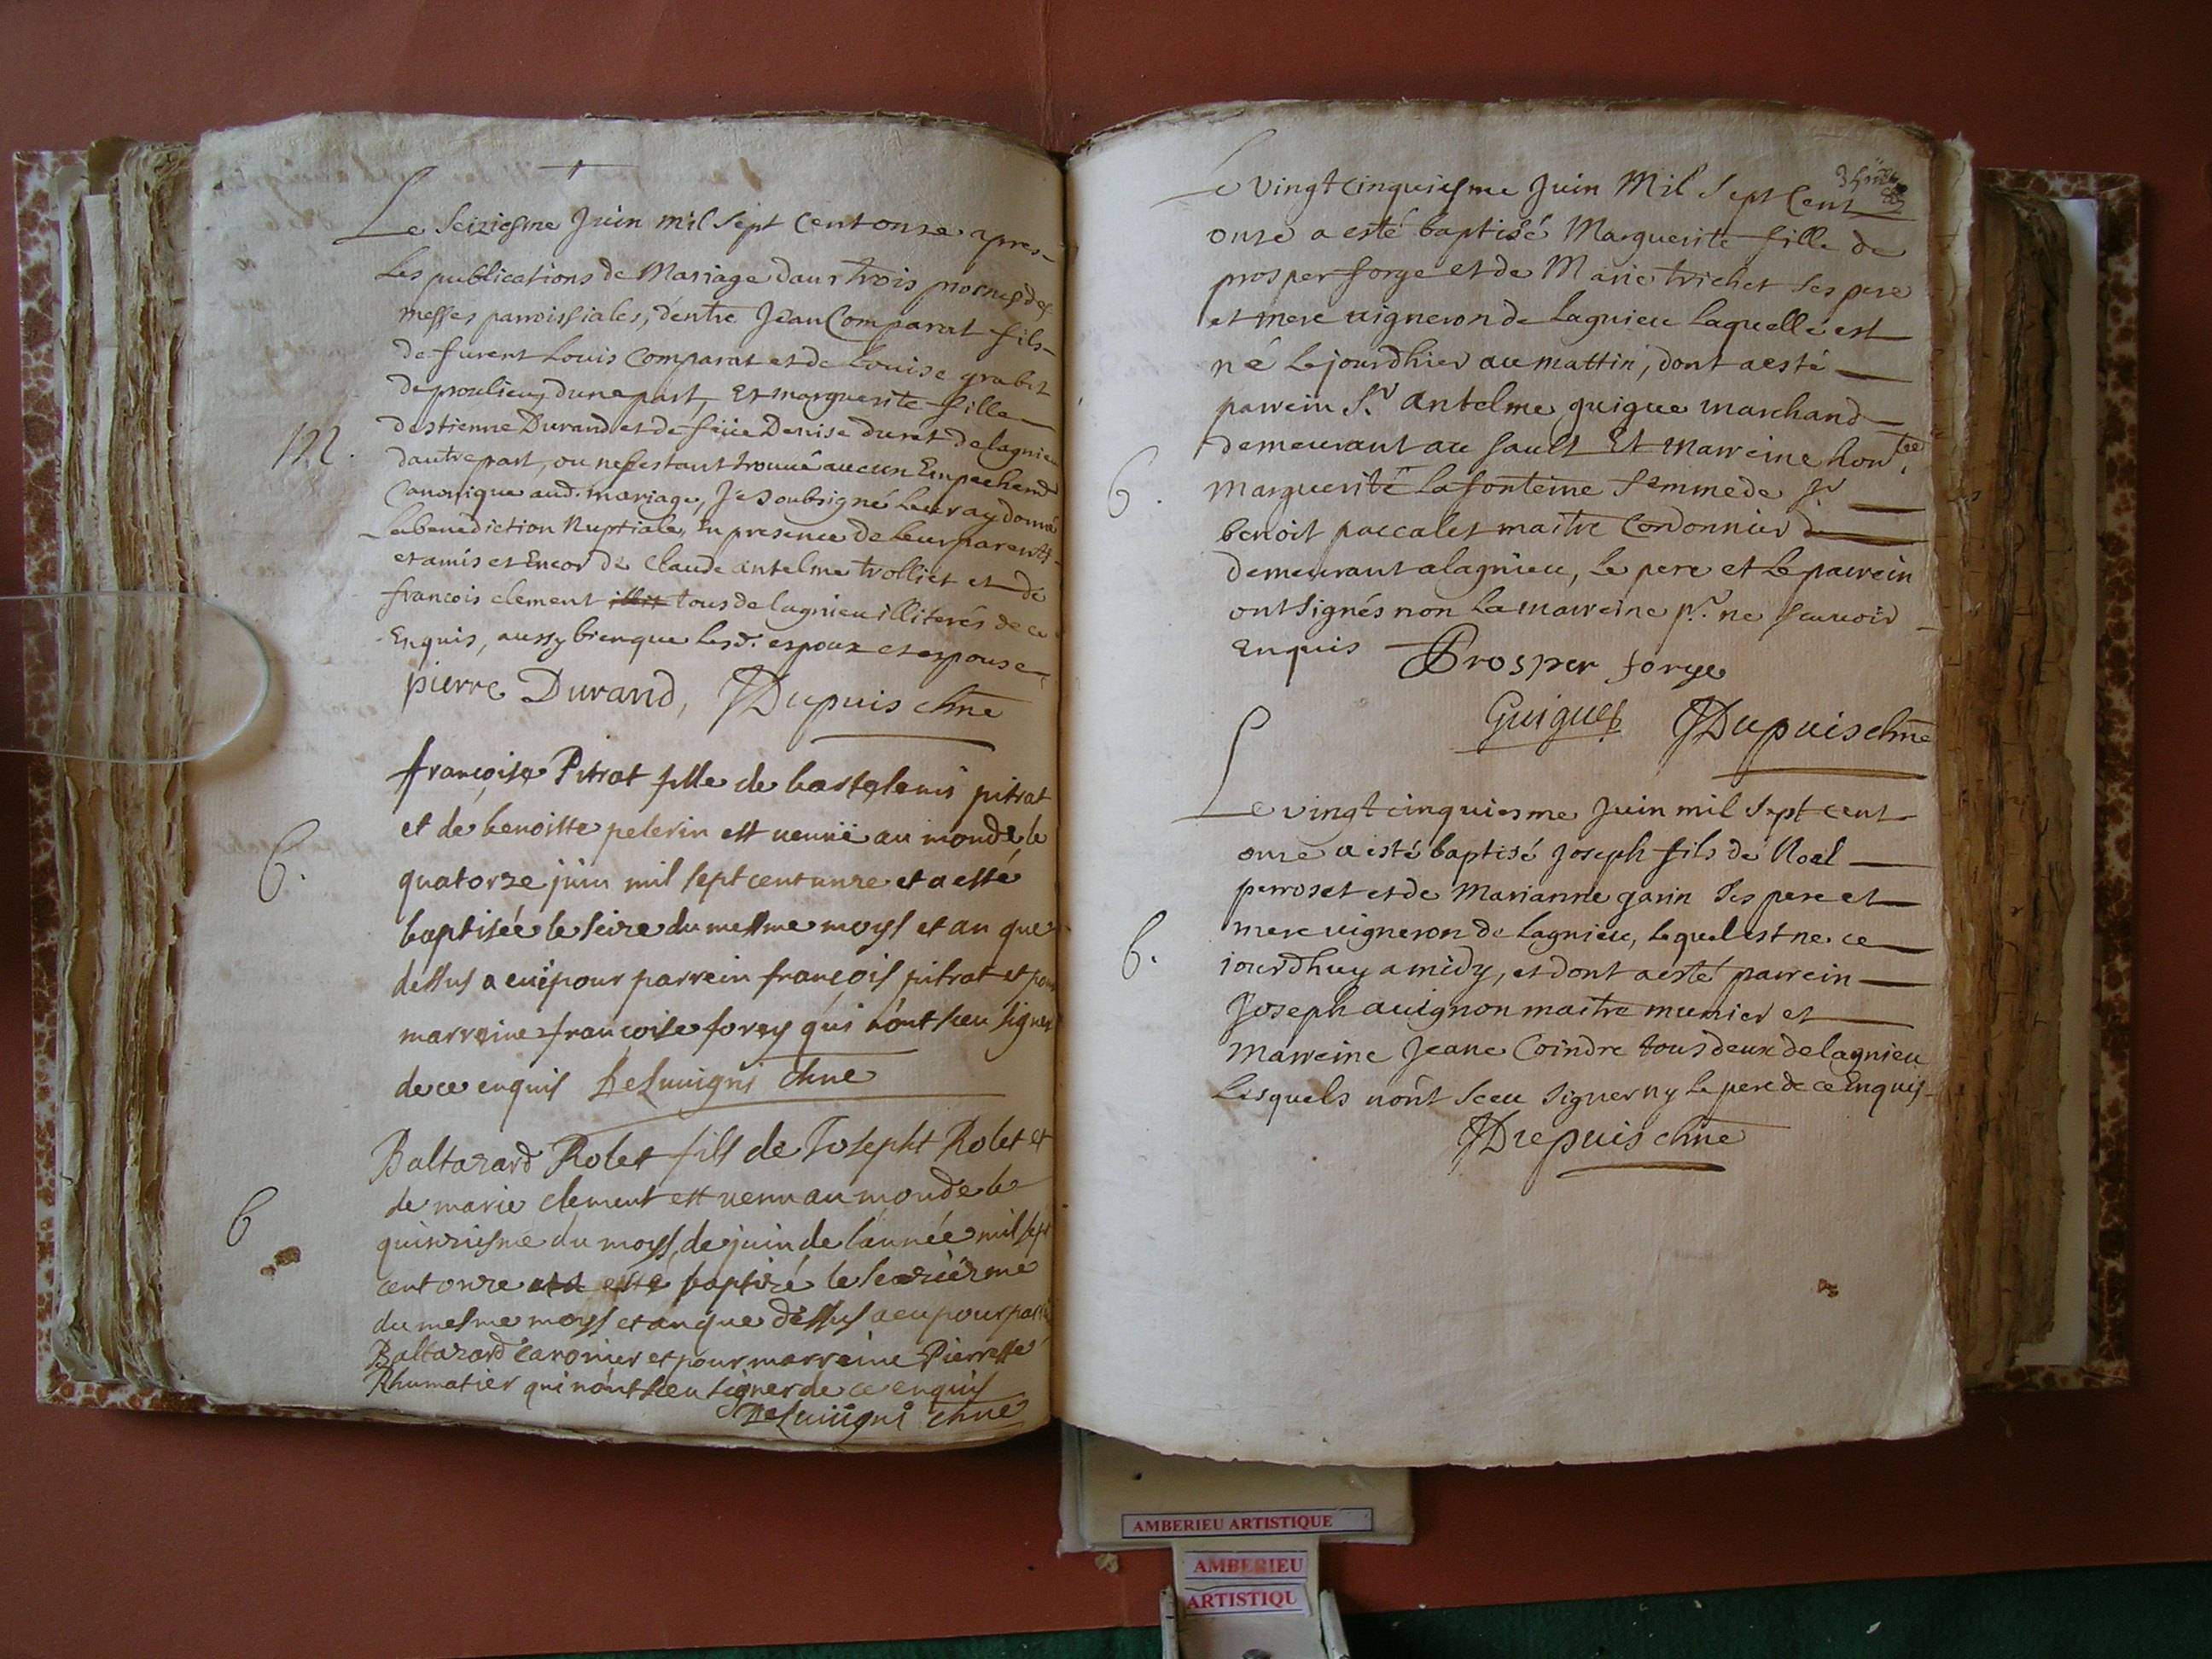 Le Seiziesme Juin mil Sept Cent onze apres
Les publications de Mariage dans trois prosnes des
messes parroissiales, d'entre Jean Comparat fils
de furent Louis Comparat et de Louise grabit
de proulieu, dune part, Et marguerite fille
destienne Durand et de feüe Denise duret de lagnieu
M.
dautre part, ou ne sestant trouué aucun Empechemt
Canonique aud. mariage, Je Soubsigné Leur ay donné
La benediction Nuptiale, En presence de Leur parents
et amis et Encor de Claude antelme trolliet et de
francois clement tous de lagnieu illiterés de ce
Enquis, aussy bien que Lesd. espoux et espouse
pierre Durand, JDupuis chne
françoise Pitrat fille de bartelemi pitrat
et de benoitte pelerin est venuë au monde le
b.
quatorze juin mil sept cent unze et a esté
baptisée le seize du mesme moys et an que
dessus a eu pour parrein françois pitrat et pour
marreine francoise forey qui n'ont sceu signer
de ce enquis Deluuigni chne
Baltazard Rolet fils de Josepht Rolet et
de marie clement est venu au monde le
b
quinziesme du moys de juin de l'année mil sept
cent onze et a esté baptizé le seiziesme
du mesme moys et an que dessus a eu pour parrein
Baltazard caronier et pour marreine Pierrette
Rhumatier qui n'ont sceu signer de ce enquis
Deluuigni chne
Le Vingt cinquiesme Juin Mil Sept Cent
onze a esté baptisé Marguerite fille de
prosper forge et de Marie trichet ses pere
et mere uigneron de Lagnieu Laquelle est
né Le jourdhier au mattin, dont a esté
parrein Sr. antelme guigue marchand
demeurant au Sault Et marreine honte.
b.
Marguerite Lafonteine femme de sr
benoit paccalet maitre Cordonnier
demeurant a lagnieu, Le pere et Le parrein
ont signés non La marreine pr. ne scauoir
Enquis Prosper forge
Guigues JDupuis chne
Le vingt cinquiesme Juin mil Sept cent
onze a esté baptisé Joseph fils de Noel
perroset et de Marianne garin Ses pere et
mere uigneron de Lagnieu, Lequel est ne ce
b.
jourdhuy a midy, et dont a esté parrein
Joseph auignon maitre munier et
Marreine Jeane Coindre tous deux de lagnieu
Lesquels n'ont sceu signer ny Le pere de ce Enquis
JDupuis chne
AMBERIEU ARTISTIQUE
AMBERIEU
ARTISTIQU